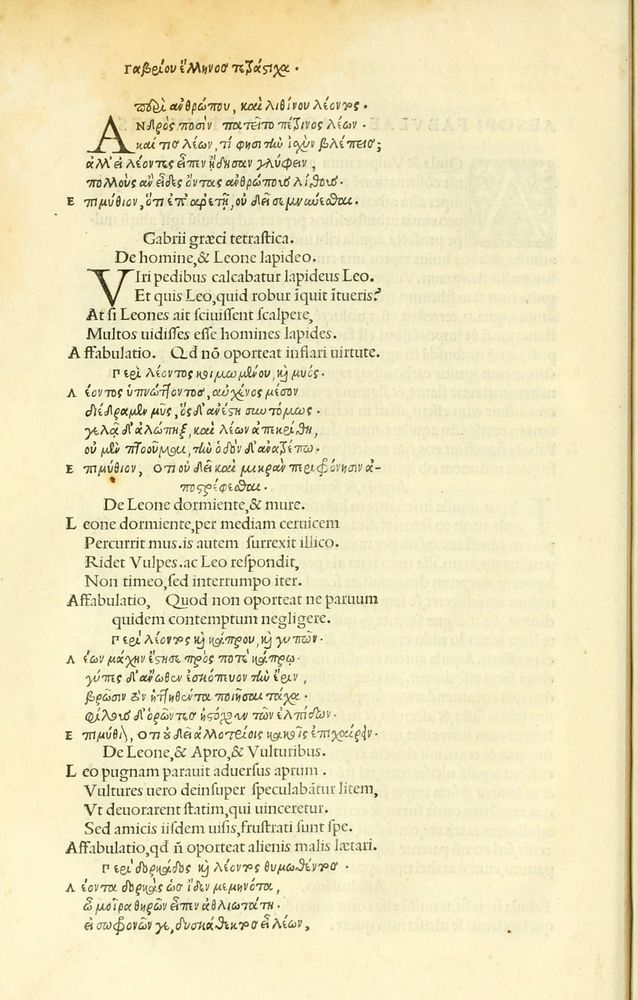 Γαβρίου ἕλληνοσ τετράστιχα.
Περὶ ἀνθρώπου, καὶ λιθίνου λέοντος.
ΑΝδρὸς ποσὶν πατεῖτο πέτρινος λέων.
Καί τις λέων, τί φησι τὴν ἰσχὺν βλέπεις;
ἀλλ' εἰ λέοντες εἶπεν ᾔδησαν γλύφειν,
πολλοὺς ἂν εἶδες ὄντας ἀνθρώπους λίθους.
Επιμύθιον, ὅτι ἐπ' ἀρετῇ, οὐ δεῖ σεμνύεσθαι.
Gabrii græci tetrastica.
De homine, & Leone lapideo.
VIri pedibus calcabatur lapideus Leo.
Et quis Leo, quid robur īquit ītueris?
At si Leones ait sciuissent scalpere,
Multos uidisses esse homines lapides.
Affabulatio. Qd nō oporteat inflari uirtute.
Περὶ λέοντος κοιμωμένου, κỳ μυός.
Λέοντος ὑπνώττοντος, αὐχένος μέσον
διέδραμεν μῦς, ὃς δ' ἀνέστη συντόμως.
γελᾷ δ' ἀλώπηξ, καὶ λέων ἀπεκρίθη,
οὐ μὲν πτοοῦμαι, τὴν ὁδὸν δ' ἀνατρέπω.
Επιμύθιον, ὅτι οὐ δεῖ καὶ μικρὰν περιφρόνησιν ἀ-
ποστρέφεσθαι.
De Leone dormiente, & mure.
Leone dormiente, per mediam ceruicem
Percurrit mus. is autem surrexit illico.
Ridet Vulpes. ac Leo respondit,
Non timeo, sed interrumpo iter.
Affabulatio, Quod non oporteat ne paruum
quidem contemptum negligere.
Περὶ λέοντος κỳ κάπρου, κỳ γυπῶν.
Λέων μάχην ἔστησε πρός ποτε κάπρῳ.
γύπες δ' ἄνωθεν ἐσκόπευον τὴν ἔριν,
βρῶσιν τὸν ἡττηθέντα ποιῆσαι τάχα.
φίλους δ' ὁρῶντες ἠστόχουν τῶν ἐλπίδων.
Επιμύθι, ὅτι ȣ δεῖ ἀλλοτρίοις κακοῖς ἐπιχαίρειν.
De Leone, & Apro, & Vulturibus.
Leo pugnam parauit aduersus aprum.
Vultures uero deinsuper speculabātur litem,
Vt deuorarent statim, qui uinceretur.
Sed amicis iisdem uisis, frustrati sunt spe.
Affabulatio, qd ñ oporteat alienis malis lætari.
Περὶ δορκάδος κỳ λέοντος θυμωθέντος.
Λέοντα δορκὰς ὡς ἴδεν μεμηνότα,
ὦ μοῖρα θηρῶν εἶπεν ἀθλιωτάτη.
εἰ σωφρονῶν γε, δυσκάθεκτος εἶ λέων,